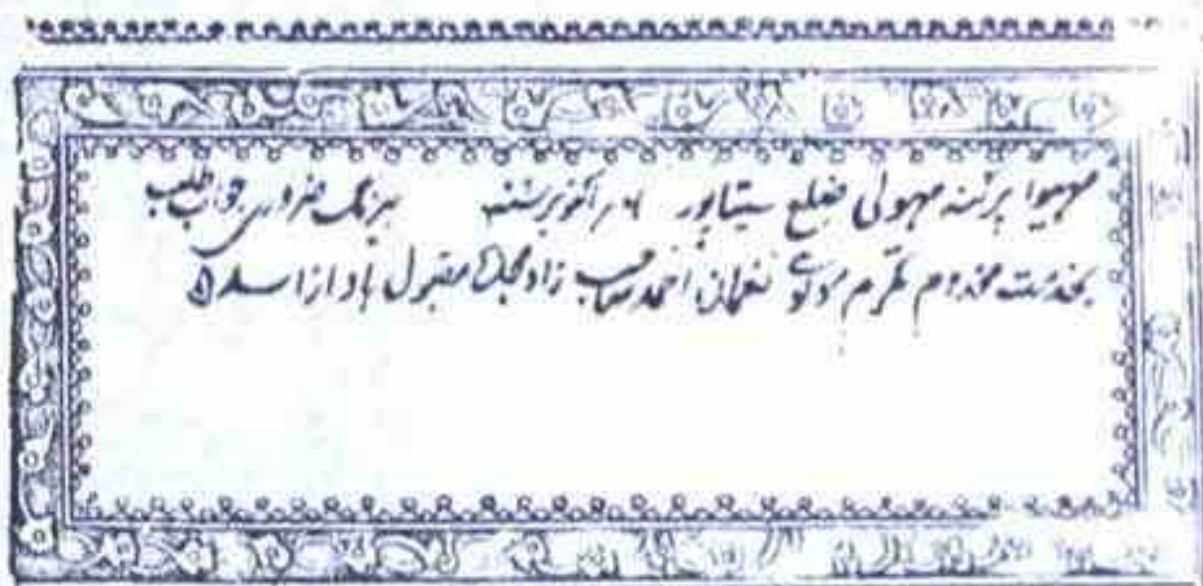 مہیوا پرگنہ مہولی ضلع سیتاپور ۶ر اکتوبر سنہ بیرنگ ضروری جواب طلب
بخدمت مخدوم مکرم مولوی نعمان احمد صاحب زاد مجدہ مقبول باد از